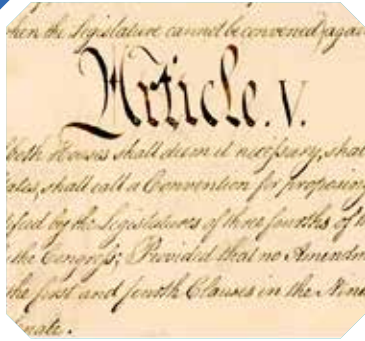 when the Legislature cannot be convened) again
Article. V.
both Houses shall deem it necessary, shal
ates, shall call a Convention for proposing
tified by the Legislatures of three fourths of t
the Congress; Provided that no Amendm
the first and fourth Clauses in the Nin
enate.